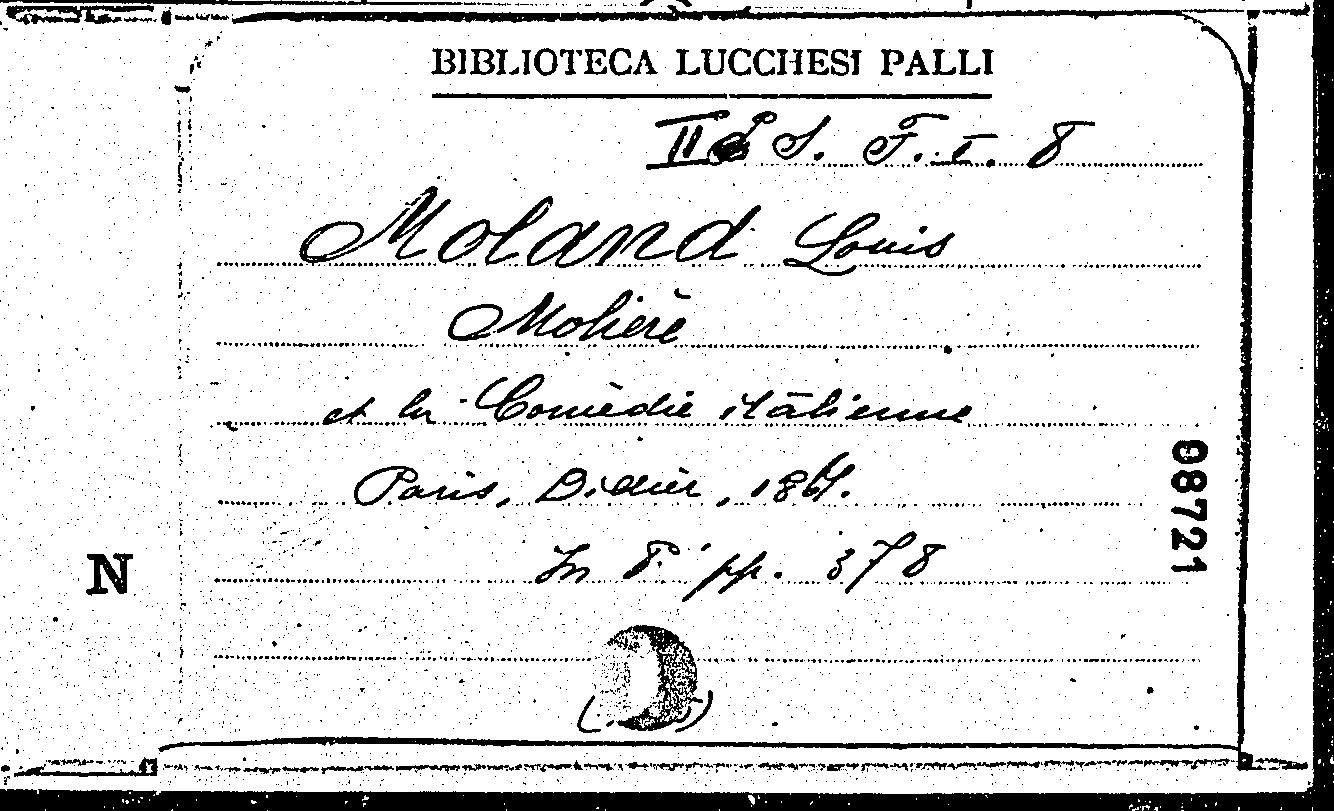 BIBLIOTECA LUCCHESI PALLI
II S. F. I. 8
Moland Louis
Molière
et la Comèdie italienne
Paris, Didier, 1867.
In 8.° pp. 378
08721
N